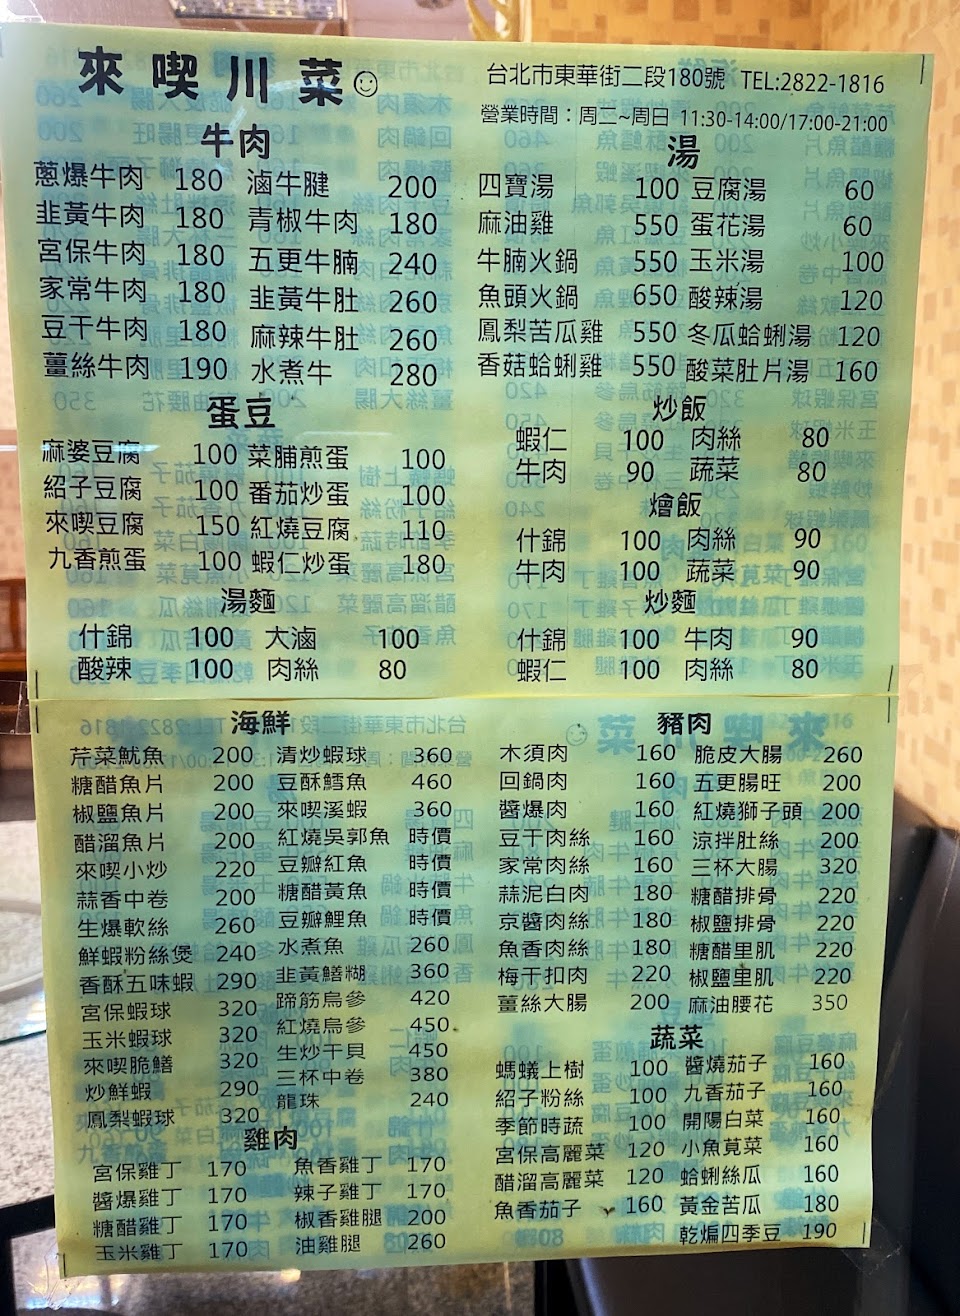 來喫川菜
台北市東華街二段180號 TEL:2822-1816
營業時間：周二~周日 11:30-14:00/17:00-21:00
牛肉
蔥爆牛肉 180 滷牛腱 200
韭黃牛肉 180 青椒牛肉 180
宮保牛肉 180 五更牛腩 240
家常牛肉 180 韭黃牛肚 260
豆干牛肉 180 麻辣牛肚 260
薑絲牛肉 190 水煮牛 280
蛋豆
麻婆豆腐 100 菜脯煎蛋 100
紹子豆腐 100 番茄炒蛋 100
來喫豆腐 150 紅燒豆腐 110
九香煎蛋 100 蝦仁炒蛋 180
湯麵
什錦 100 大滷 100
酸辣 100 肉絲 80
湯
四寶湯 100 豆腐湯 60
麻油雞 550 蛋花湯 60
牛腩火鍋 550 玉米湯 100
魚頭火鍋 650 酸辣湯 120
鳳梨苦瓜雞 550 冬瓜蛤蜊湯 120
香菇蛤蜊雞 550 酸菜肚片湯 160
炒飯
蝦仁 100 肉絲 80
牛肉 90 蔬菜 80
燴飯
什錦 100 肉絲 90
牛肉 100 蔬菜 90
炒麵
什錦 100 牛肉 90
蝦仁 100 肉絲 80
海鮮
芹菜魷魚 200 清炒蝦球 360
糖醋魚片 200 豆酥鱈魚 460
椒鹽魚片 200 來喫溪蝦 360
醋溜魚片 200 紅燒吳郭魚 時價
來喫小炒 220 豆瓣紅魚 時價
蒜香中卷 200 糖醋黃魚 時價
生爆軟絲 260 豆瓣鯉魚 時價
鮮蝦粉絲煲 240 水煮魚 260
香酥五味蝦 290 韭黃鱔糊 360
宮保蝦球 320 蹄筋烏參 420
玉米蝦球 320 紅燒烏參 450
來喫脆鱔 320 生炒干貝 450
炒鮮蝦 290 三杯中卷 380
鳳梨蝦球 320 龍珠 240
雞肉
宮保雞丁 170 魚香雞丁 170
醬爆雞丁 170 辣子雞丁 170
糖醋雞丁 170 椒香雞腿 200
玉米雞丁 170 油雞腿 260
豬肉
木須肉 160 脆皮大腸 260
回鍋肉 160 五更腸旺 200
醬爆肉 160 紅燒獅子頭 200
豆干肉絲 160 涼拌肚絲 200
家常肉絲 160 三杯大腸 320
蒜泥白肉 180 糖醋排骨 220
京醬肉絲 180 椒鹽排骨 220
魚香肉絲 180 糖醋里肌 220
梅干扣肉 220 椒鹽里肌 220
薑絲大腸 200 麻油腰花 350
蔬菜
螞蟻上樹 100 醬燒茄子 160
紹子粉絲 100 九香茄子 160
季節時蔬 100 開陽白菜 160
宮保高麗菜 120 小魚莧菜 160
醋溜高麗菜 120 蛤蜊絲瓜 160
魚香茄子 160 黃金苦瓜 180
乾煸四季豆 190